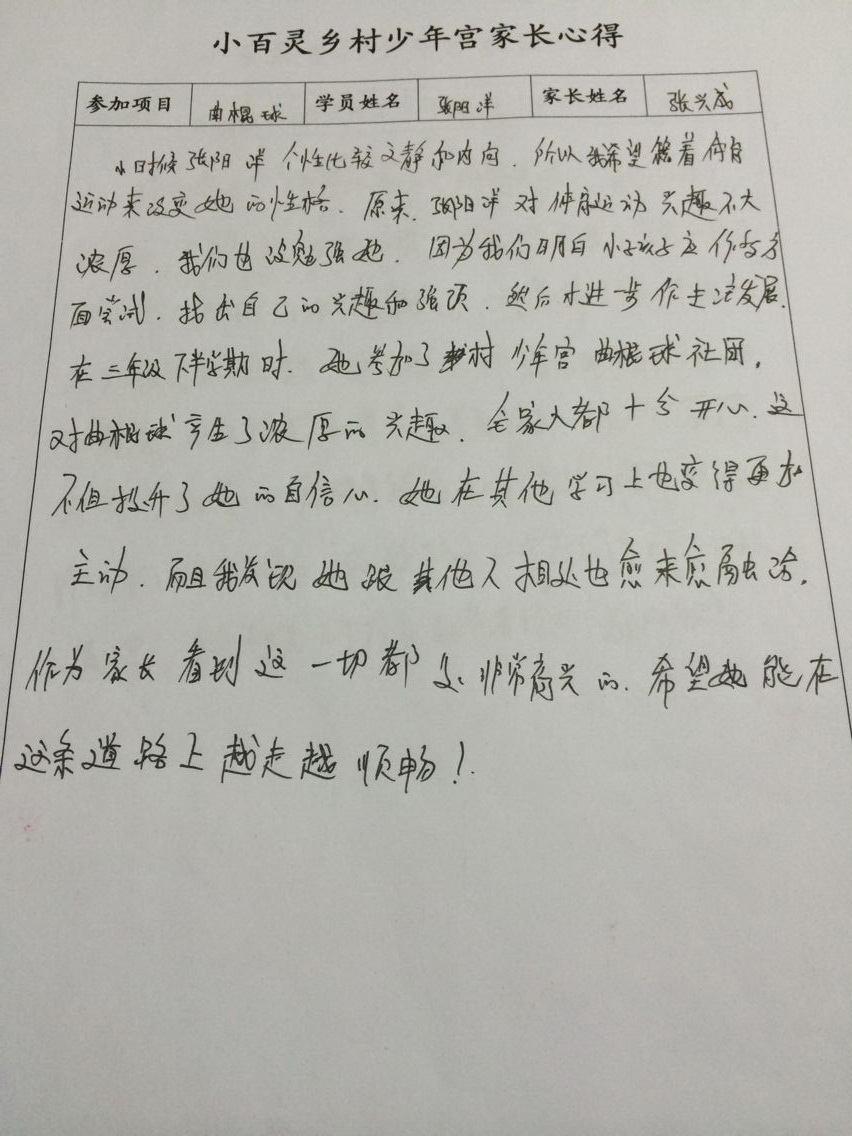 小百灵乡村少年宫家长心得
参加项目 曲棍球 学员姓名 张阳洋 家长姓名 张兴成
小时候张阳洋个性比较文静和内向，所以我希望能着体育
运动来改变她的性格。原来，张阳洋对体育运动兴趣不大
浓厚，我们也没勉强她，因为我们明白小孩子应作多方
面尝试，找出自己的兴趣和强项，然后才进一步作生涯发展。
在三年级下半学期时，她参加了乡村少年宫曲棍球社团，
对曲棍球产生了浓厚的兴趣，全家人都十分开心，这
不但提升了她的自信心，她在其他学习上也变得更加
主动，而且我发现她跟其他人相处也愈来愈融洽，
作为家长看到这一切都是非常高兴的，希望她能在
这条道路上越走越顺畅！